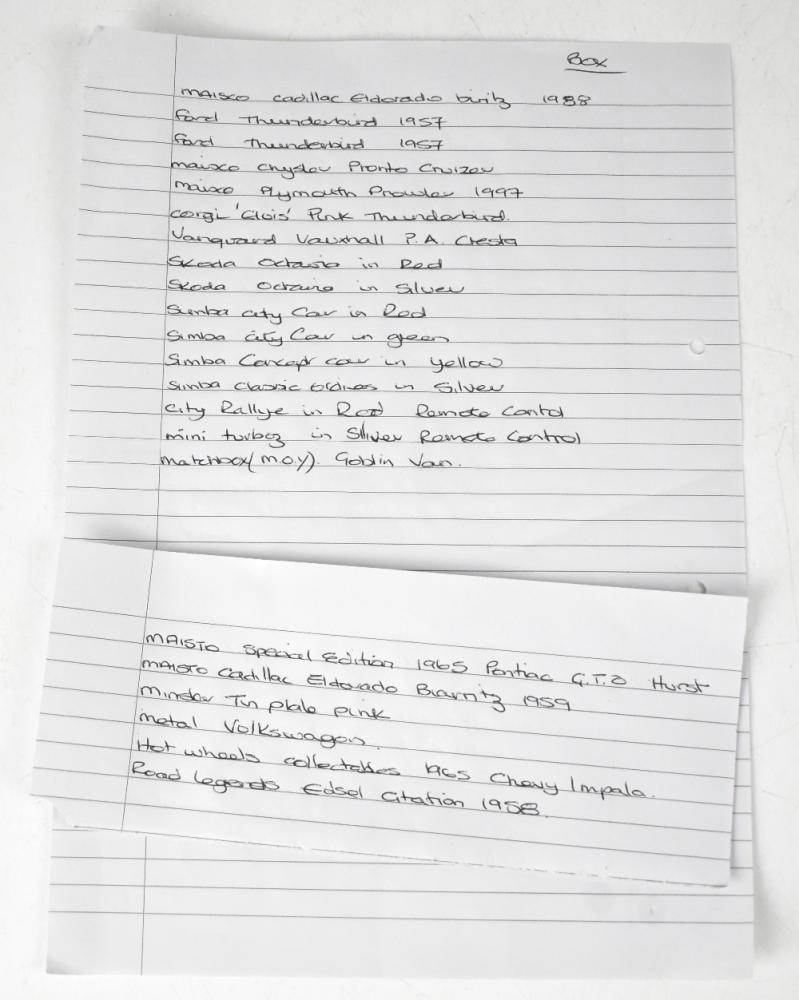 Box
MAISCO Cadillac Eldorado biritz 1988
Ford Thunderbird 1957
Ford Thunderbird 1957
maisco Chyslev Pronto Cruizev
maisco Plymouth Prowlev 1997
corgi 'Clois' Pink Thunderbird.
Vanguard Vauxhall P.A. Cresta
Skoda Octavia in Red
Skoda Octavia in Silver
Simba city Car in Red
Simba city Car in green
Simba Concept car in yellow
Simba classic in Silver
City Rallye in Red Remote Contol
mini turboz in Silver Remote Control
matchbox (M.O.Y). Goblin Van.
MAISTO Special Edition 1965 Pontiac G.T.O Hurst
MAISTO Cadillac Eldorado Biarritz 1959
Tin plate pink
metal Volkswagon.
Hot wheels collectables 1965 Chevy Impala.
Road Legends Edsel Citation 1958.